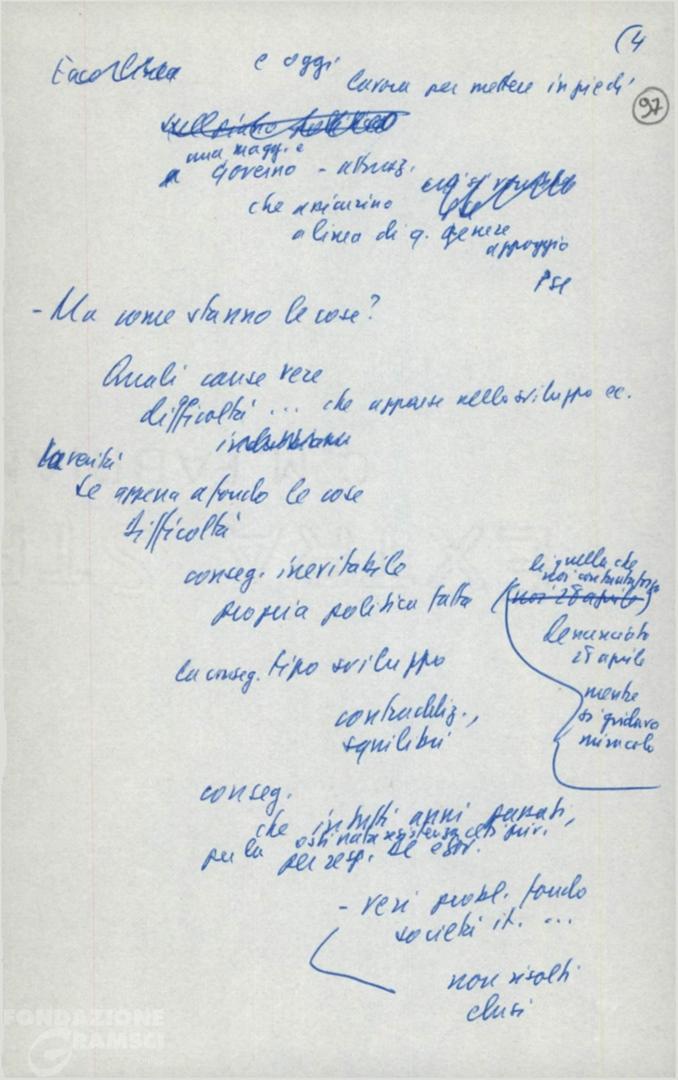 (4
97
e oggi
lavora per mettere in piedi
una magg. e
governo - attuaz.
che assicurino
a linea di q. genere
appoggio
PSI
- Ma come stanno le cose?
Quali cause vere
difficoltà ... che apparse nello sviluppo ec.
La verità
Se appena a fondo le cose
difficoltà
conseg. inevitabile
propria politica fatta
di quella che
noi
(noi 28 aprile)
denunciato
28 aprile
mentre
si gridava
miracolo
la conseg. tipo sviluppo
contraddiz.,
squilibri
conseg.
che in tutti anni passati,
per la ostinata resistenza ceti privi.
per resp. DC
- veri probl. fondo
società it. ...
non risolti
elusi
FONDAZIONE
GRAMSCI